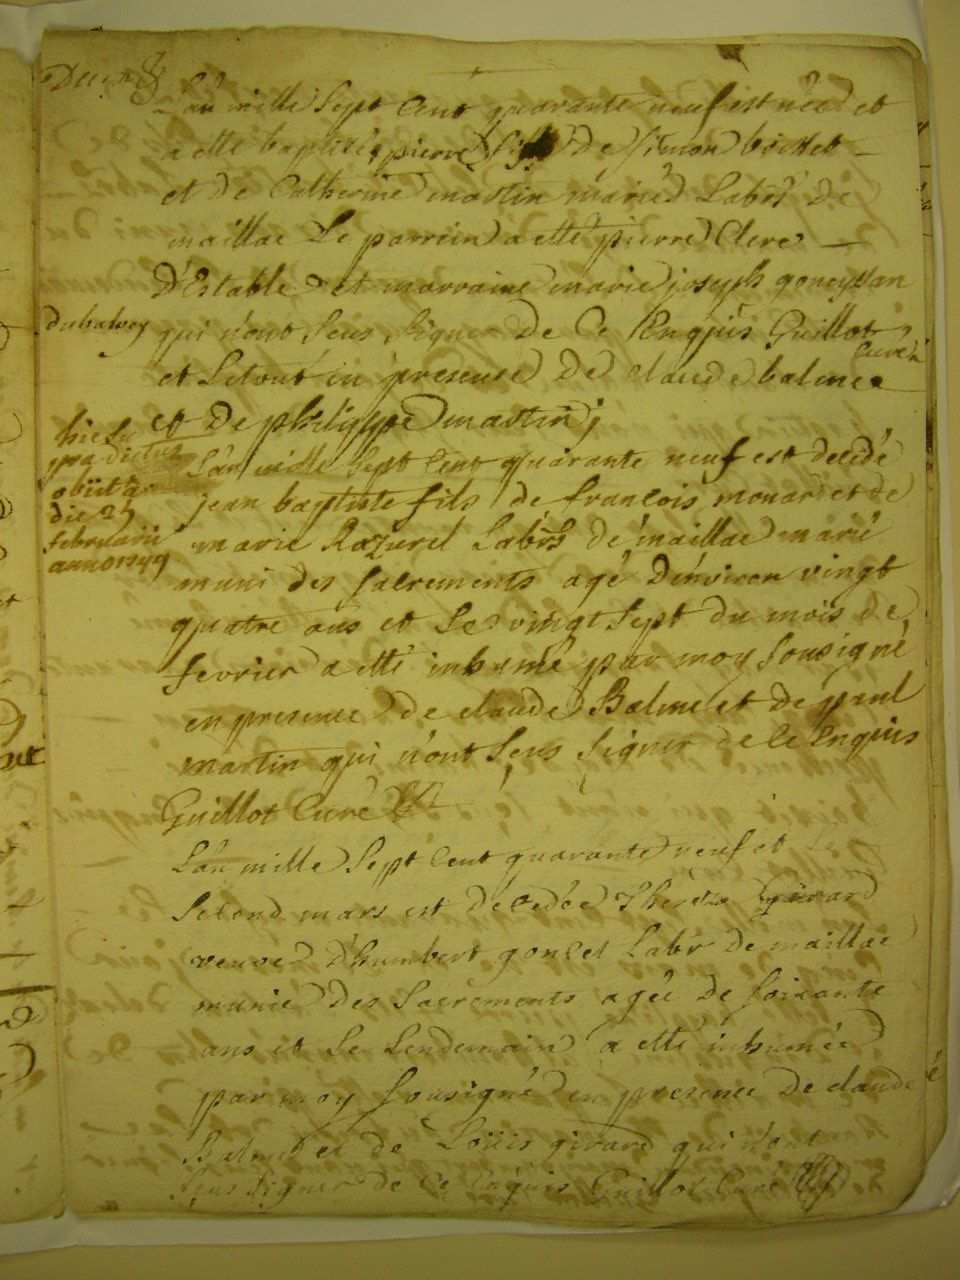 L'an mille Sept Cent quarante neuf est née et
a ette baptisé pierre fils de simon
et de Catherine martin mariéd Labrs de
maillac Le parrein a ette pierre Clerc
D'Estables et marraine marie joseph
qui n'ont seus signer de Ce Enquis Guillot
Curé
et Letout en presence de claude balme
et De philippe martin
dubalvey
hic su
pra dictus
obiit
die 27
februarii
anno 1749
L'an mille Sept Cent quarante neuf est decedé
jean baptiste fils de francois monard et de
marie Razurel Labrs de maillac marié
muni des Sacrements agé D'environ vingt
quatre ans et Le vingt sept du mois de
fevrier a etté inhumé par moy sousigné
en presence de claude Balme et de paul
martin qui n'ont seus signer de Ce Enquis
Guillot Curé
L'an mille Sept Cent quarante neuf et Le
Second mars est décedée Therèze girard
veuve d'humbert goncet Labr de maillac
munie des Sacrements agée de soixante
ans et Le Lendemain a etté inhumée
par moy sousigné en presence de claude
Balme et de Loüis girard qui n'ont
seus signer de Ce enquis Guillot Curé